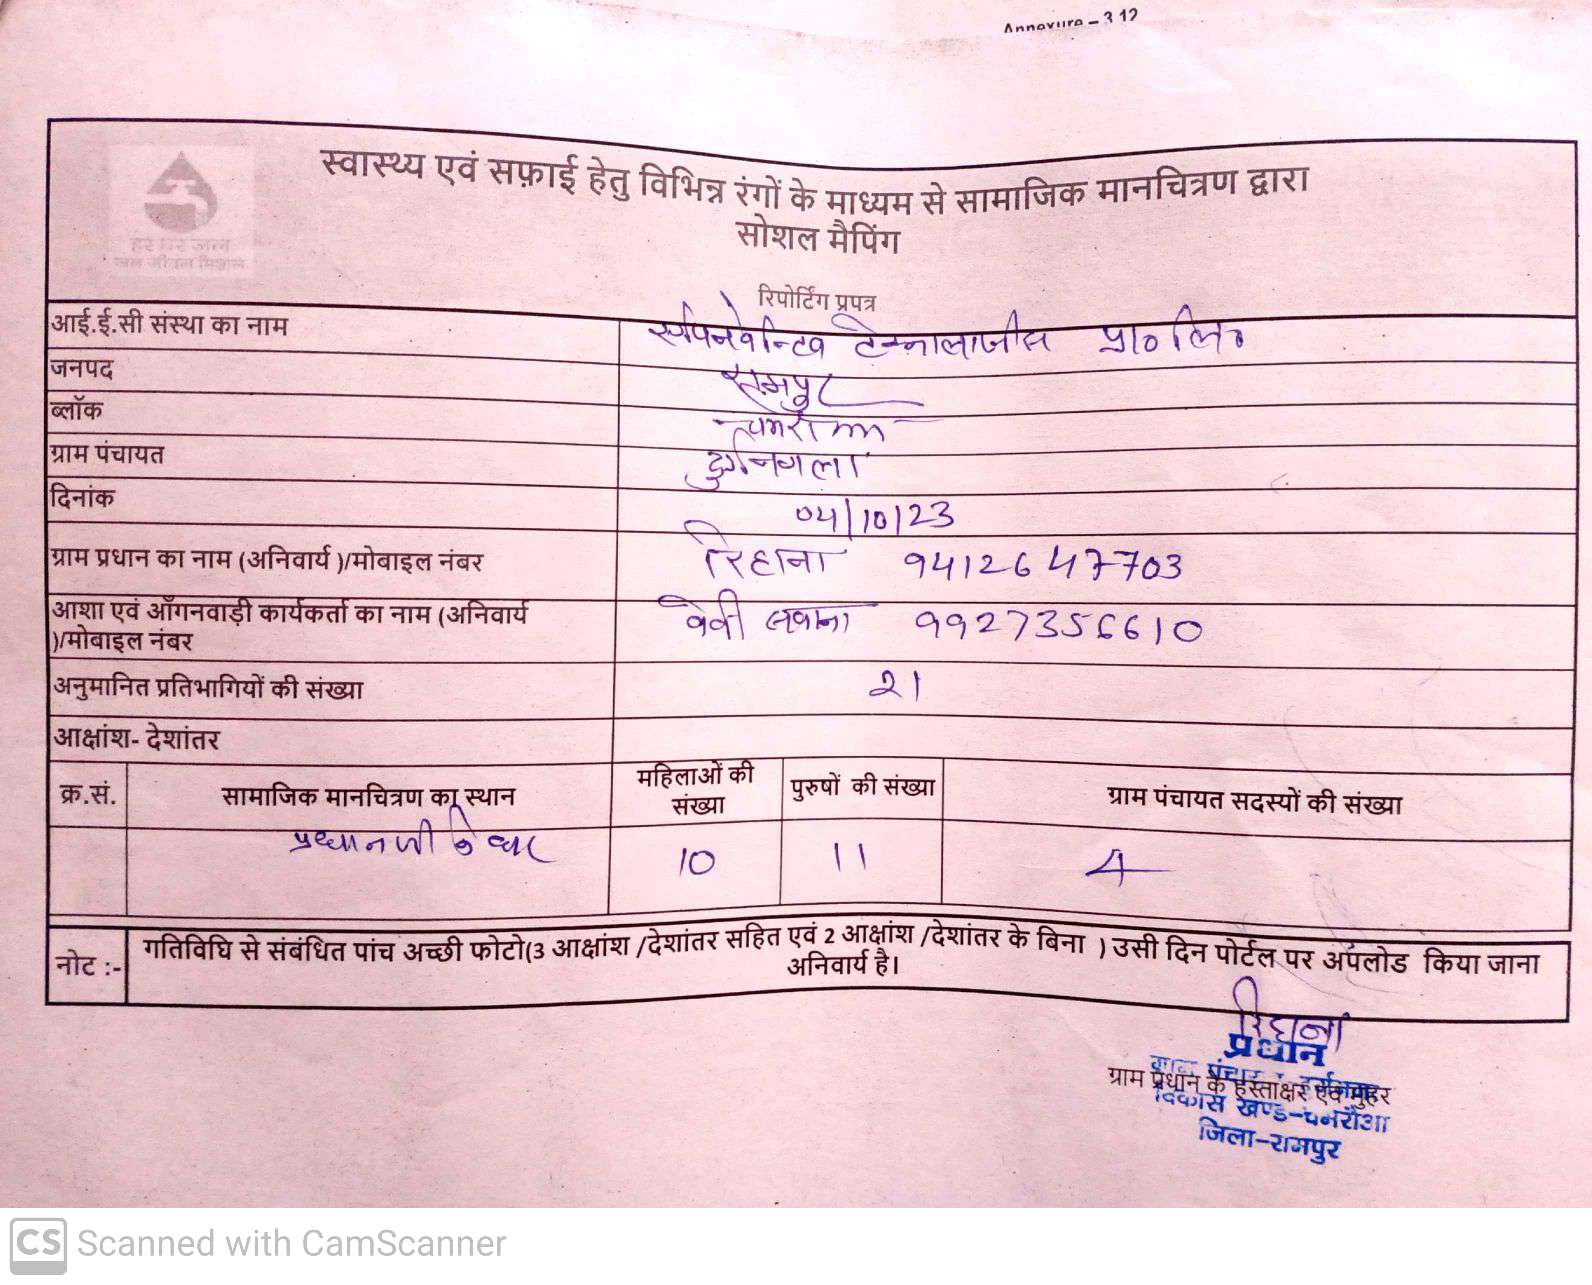 Annexure – 3.12
हर घर जल
जल जीवन मिशन
स्वास्थ्य एवं सफ़ाई हेतु विभिन्न रंगों के माध्यम से सामाजिक मानचित्रण द्वारा
सोशल मैपिंग
रिपोर्टिंग प्रपत्र
आई.ई.सी संस्था का नाम प्रा० लि०
जनपद रामपुर
ब्लॉक
ग्राम पंचायत
दिनांक 04/10/23
ग्राम प्रधान का नाम (अनिवार्य )/मोबाइल नंबर रिहाना 9412647703
आशा एवं आँगनवाड़ी कार्यकर्ता का नाम (अनिवार्य
)/मोबाइल नंबर 9927356610
अनुमानित प्रतिभागियों की संख्या 21
आक्षांश- देशांतर
क्र.सं. सामाजिक मानचित्रण का स्थान महिलाओं की संख्या पुरुषों की संख्या ग्राम पंचायत सदस्यों की संख्या
प्रधान जी के घर 10 11 4
नोट :- गतिविधि से संबंधित पांच अच्छी फोटो(3 आक्षांश /देशांतर सहित एवं 2 आक्षांश /देशांतर के बिना ) उसी दिन पोर्टल पर अपलोड किया जाना
अनिवार्य है।
रिहाना
प्रधान
ग्राम प्रधान के हस्ताक्षर एवं मुहर
विकास खण्ड-चमरौआ
जिला-रामपुर
CS Scanned with CamScanner